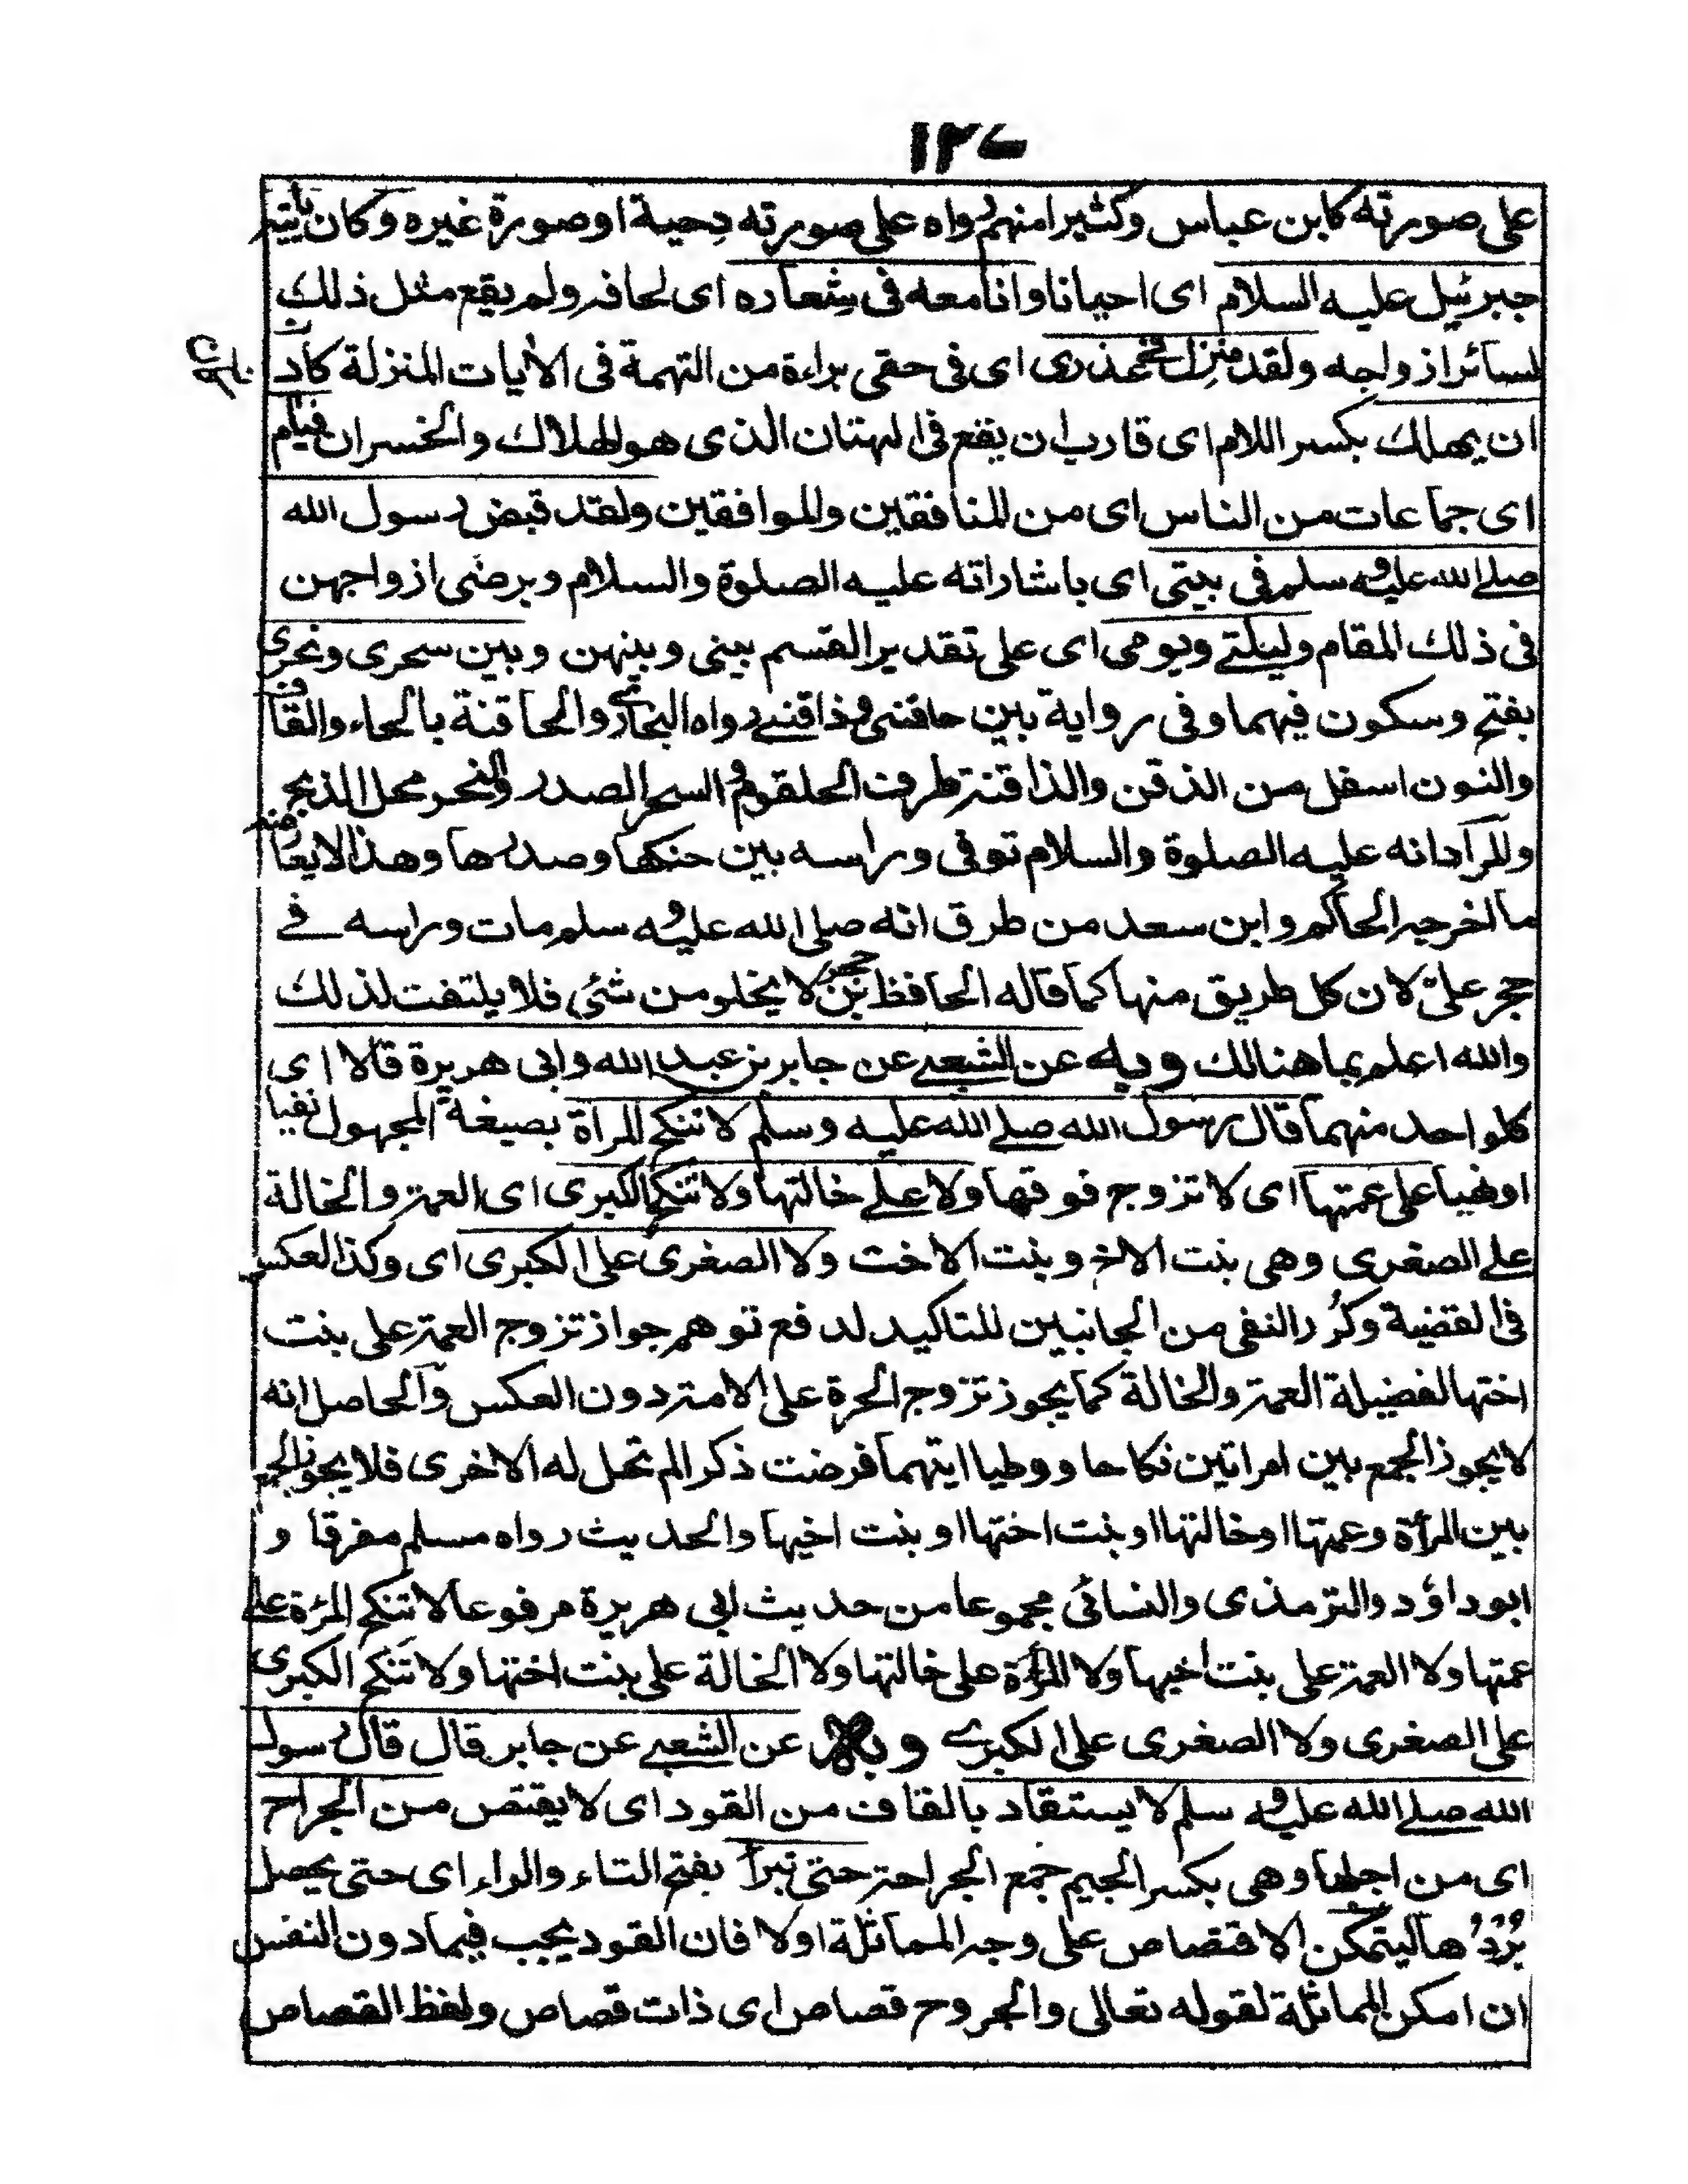 ١٢٧
على صورته كابن عباس وكثيرا منهم رواه على صورته دحية او صورة غيره وكان يأتيه
جبرئيل عليه السلام اى احيانا وانا معه فى شعاره اى لحافه ولم يقع مثل ذلك
لسائر ازواجه ولقد نزل فى عذرى اى فى حقى براءة من التهمة فى الأيات المنزلة كادت
ان يهلك بكسر اللام اى قارب ان يقع فى البهتان الذى هو الهلاك والخسران فيام
اى جماعات من الناس اى من المنافقين والموافقين ولقد قبض رسول الله
صلى الله عليه وسلم فى بيتى اى باشاراته عليه الصلوة والسلام وبرضى ازواجهن
فى ذلك المقام وليلتى ويومى اى على تقدير القسم بينى وبينهن وبين سحرى ونحرى
بفتح وسكون فيهما وفى رواية بين حاقنتى وذاقنتى رواه البخارى والحاقنة بالحاء والقاف
والنون اسفل من الذقن والذاقنة طرف الحلقوم والسحر الصدر والنحر محل الذبح
والمراد انه عليه الصلوة والسلام توفى وراسه بين حنكها وصدرها وهذا لا يعارضه
ما اخرجه الحاكم وابن سعد من طرق انه صلى الله عليه وسلم مات وراسه فى
حجر على لان كل طريق منها كما قاله الحافظ بن حجر لا يخلو من شئ فلا يلتفت لذلك
والله اعلم بما هنالك وبه عن الشعبى عن جابر بن عبد الله وابى هريرة قالا اى
كل واحد منهما قال رسول الله صلى الله عليه وسلم لا تنكح المرأة بصيغة المجهول نفيا
او نهيا على عمتها اى لا تزوج فوقها ولا على خالتها ولا تنكح الكبرى اى العمة والخالة
على الصغرى وهى بنت الاخ وبنت الاخت ولا الصغرى على الكبرى اى وكذا العكس
فى القضية وكرر النفى من الجانبين للتاكيد لدفع توهم جواز تزوج العمة على بنت
اختها لفضيلة العمة والخالة كما يجوز تزوج الحرة على الامة دون العكس والحاصل انه
لا يجوز الجمع بين امراتين نكاحا ووطيا ايتهما فرضت ذكرا لم تحل له الاخرى فلا يجوز الجمع
بين المرأة وعمتها او خالتها او بنت اختها او بنت اخيها والحديث رواه مسلم مفرقا و
ابو داؤد والترمذى والنسائى مجموعا من حديث ابى هريرة مرفوعا لا تنكح المرءة على
عمتها ولا العمة على بنت اخيها ولا المرأة على خالتها ولا الخالة على بنت اختها ولا تنكح الكبرى
على الصغرى ولا الصغرى على الكبرى وبه عن الشعبى عن جابر قال قال رسول
الله صلى الله عليه وسلم لا يستقاد بالقاف من القود اى لا يقتص من الجراح
اى من اجلها وهى بكسر الجيم جمع الجراحة حتى تبرأ بفتح التاء والراء اى حتى يحصل
برؤها ليتمكن الاقتصاص على وجه المماثلة اولا فان القود يجب فيما دون النفس
ان امكن المماثلة لقوله تعالى والجروح قصاص اى ذات قصاص ولفظ القصاص